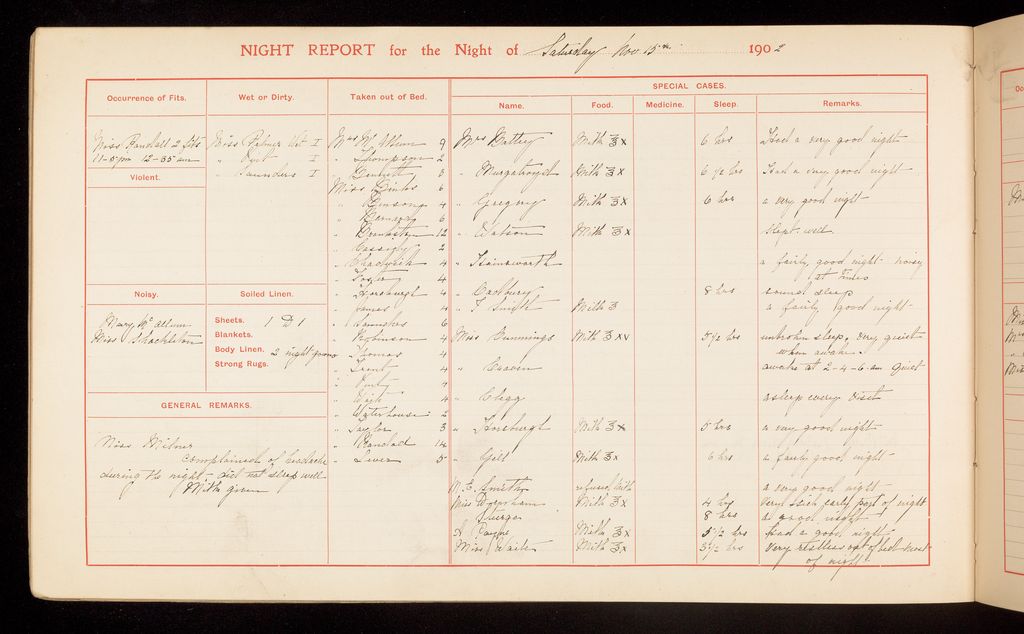 NIGHT REPORT for the Night of Saturday Nov 15th 1902
Occurrence of Fits.
Miss Randall 2 fits
11-5 pm 12-35 am
Violent.
Noisy.
Mary Mc Allum
Miss Shackleton
Wet or Dirty.
Miss Palmer Wet I
" I
" Saunders I
Soiled Linen.
Sheets. 1 D 1
Blankets.
Body Linen. 2 night gowns
Strong Rugs.
GENERAL REMARKS.
Miss Milner
complained of headache
during the night - did not sleep well
Milk given
Taken out of Bed.
Mrs Mc Allum 9
" Thompson 2
" 3
Miss Binks 6
" 4
" 6
" 12
" Cassidy 2
" Chadwick 4
" Foster 4
" Horsburgh 4
" James 4
" Saunders 6
" Robinson 4
" Thomas 4
" 4
" 4
" 4
" Waterhouse 2
" Taylor 3
" Randall 14
" Lever 5
SPECIAL CASES.
Name. Food. Medicine. Sleep. Remarks.
Mrs Milk 3x 6 hrs Had a very good night
" Murgatroyd Milk 3x 6 1/2 hrs Had a very good night
" Gregory Milk 3x 6 hrs a very good night
" Watson Milk 3x Slept well
" Hainsworth a fairly good night noisy
at times
" Cadbury 8 hrs sound sleep
" F Smith Milk 3 a fairly good night
Miss Cummings Milk 3xv 5 1/2 hrs unbroken sleep, very quiet
when awake.
" Craven awake at 2-4-6 am Quiet
" Clegg asleep every visit
" Horsburgh Milk 3x 5 hrs a very good night
" Gill Milk 3x 6 hrs a fairly good night
M. E. Smith refused Milk a very good night
Miss Milk 3x 4 hrs very sick early part of night
" 8 hrs a good night
A Payne Milk 3x 5 1/2 hrs had a good night
Miss Waite Milk 3x 3 1/2 hrs Very restless out of bed most
of night